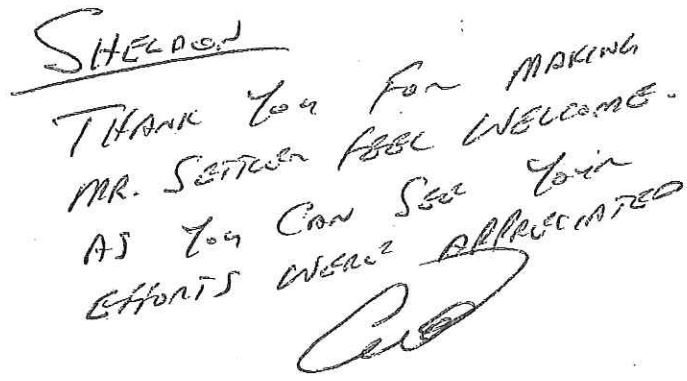 SHELDON
THANK You FOR MAKING
MR. FEEL WELCOME.
AS You CAN SEE Your
EFFORTS WERE APPRECIATED